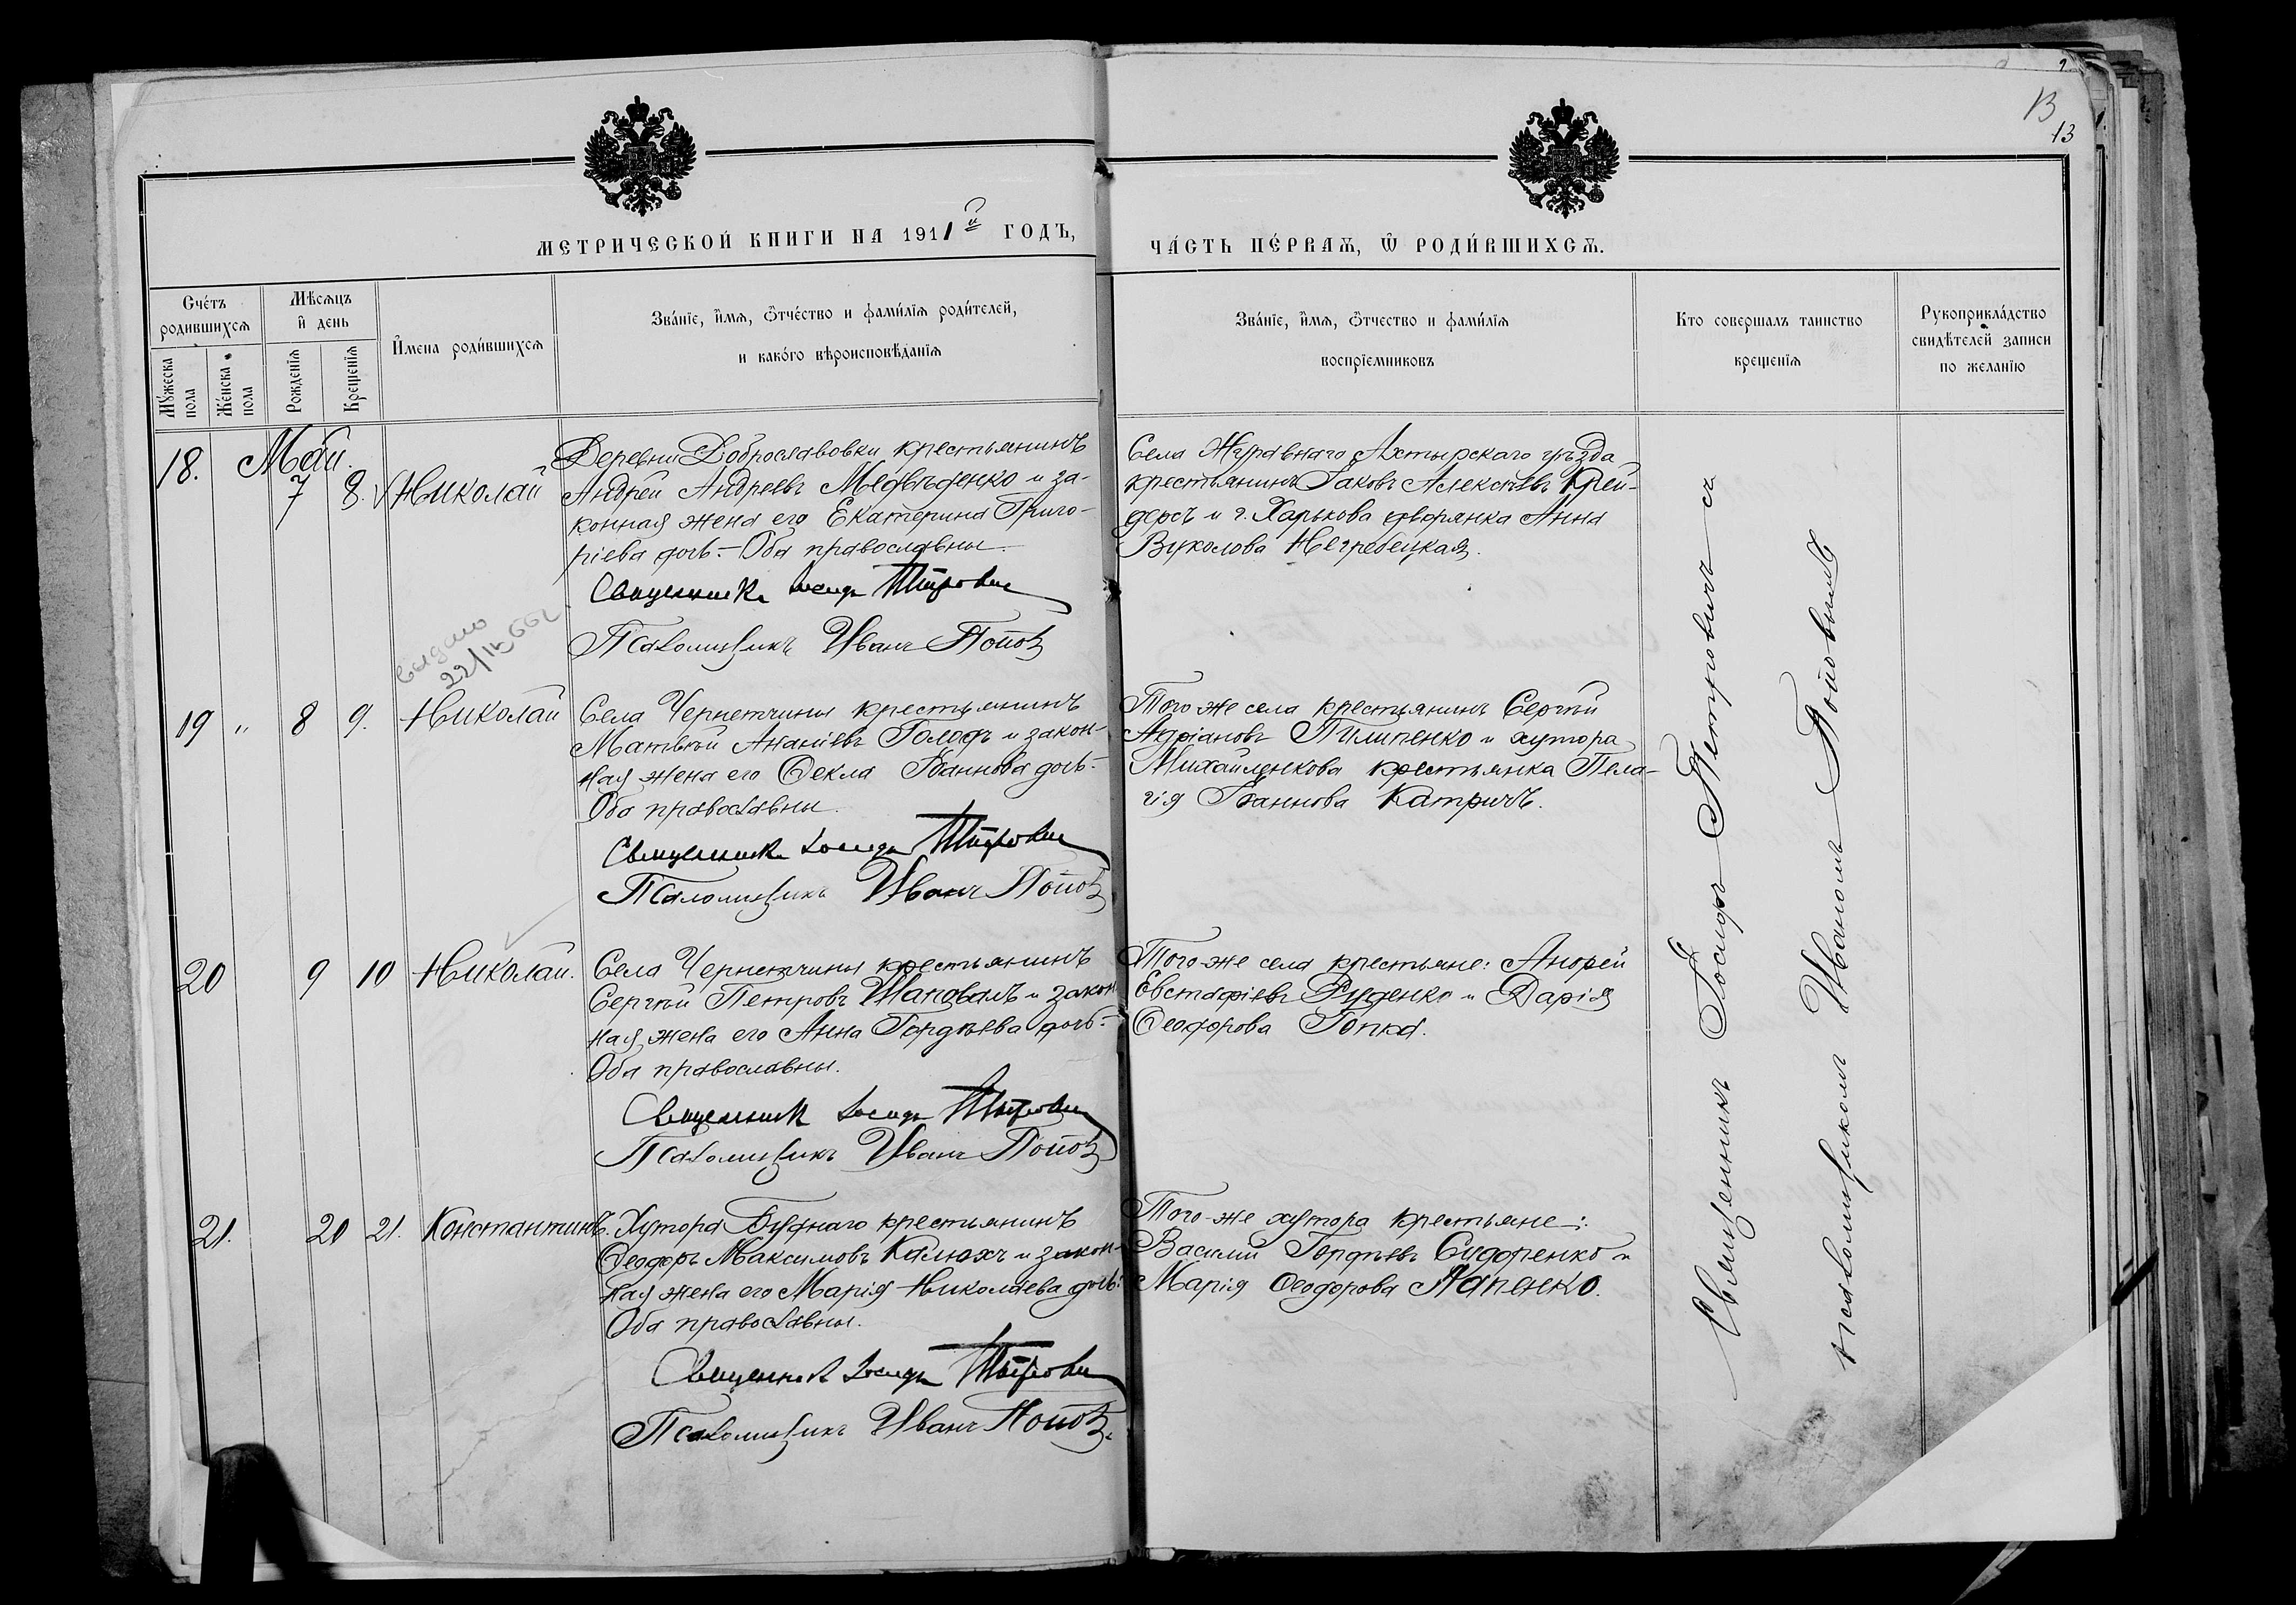 13
13
МЕТРИЧЕСКОЙ КНИГИ НА 1911й ГОДЪ,
ЧА́СТЬ ПЕ́РВАѦ, Ѽ РОДИ́ВШИХСѦ.
Сче́тъ родившихсѧ
Мѣсѧцъ и҆ день
И҆́мена роди́вшихсѧ
Зва́нїе, и҆́мѧ, ѻ҆́тчество и фами́лїѧ роди́телей,
и како́го вѣроисповѣ́данїѧ
Зва́нїе, и҆́мѧ, ѻ҆́тчество и фами́лїѧ
воспрїемниковъ
Кто совершалъ таинство
крещенїѧ
Рукоприкла́дство
свидѣ́телей записи
по желанїю
Мꙋ́жеска пола
Же́нска пола
Рожденїѧ
Крещенїѧ
18.
Май.
7
8.
Николай
Деревни Доброславовки крестьянинъ
Андрей Андреевъ Медвѣденко и за-
конная жена его Екатерина Григо-
ріева дочь. – Оба православны.
Священникъ Іосифъ Петровичъ
Псаломщикъ Иванъ Поповъ
Села Журавнаго Ахтырскаго уѣзда
крестьянинъ Іаковъ Алексѣевъ Крей-
дерсъ и г. Харькова дворянка Анна
Вуколова Негребецкая.
выдано
22/IV 66г
19
"
8
9.
Николай
Села Чернетчины крестьянинъ
Матѳій Ананіевъ Голофъ и закон-
ная жена его Ѳекла Іоаннова дочь. –
Оба православны.
Священникъ Іосифъ Петровичъ
Псаломщикъ Иванъ Поповъ
Того же села крестьянинъ Сергій
Адріановъ Пилипенко и хутора
Михайленкова крестьянка Пела-
гія Іоаннова Катричъ.
20
9
10
Николай.
Села Чернетчины крестьянинъ
Сергій Петровъ Шаповалъ и закон-
ная жена его Анна Гордѣева дочь. –
Оба православны.
Священникъ Іосифъ Петровичъ
Псаломщикъ Иванъ Поповъ
Того-же села крестьяне: Андрей
Евстафіевъ Руденко и Дарія
Ѳеодорова Гопка.
21.
20
21.
Константинъ.
Хутора Буднаго крестьянинъ
Ѳеодоръ Максимовъ Калюхъ и закон-
ная жена его Марія Николаева дочь.
Оба православны.
Священникъ Іосифъ Петровичъ
Псаломщикъ Иванъ Поповъ.
Того-же хутора крестьяне:
Василій Гордѣевъ Сидоренко и
Марія Ѳеодорова Лапенко.
Священникъ Іосифъ Петровичъ съ
псаломщикомъ Иваномъ Поповымъ